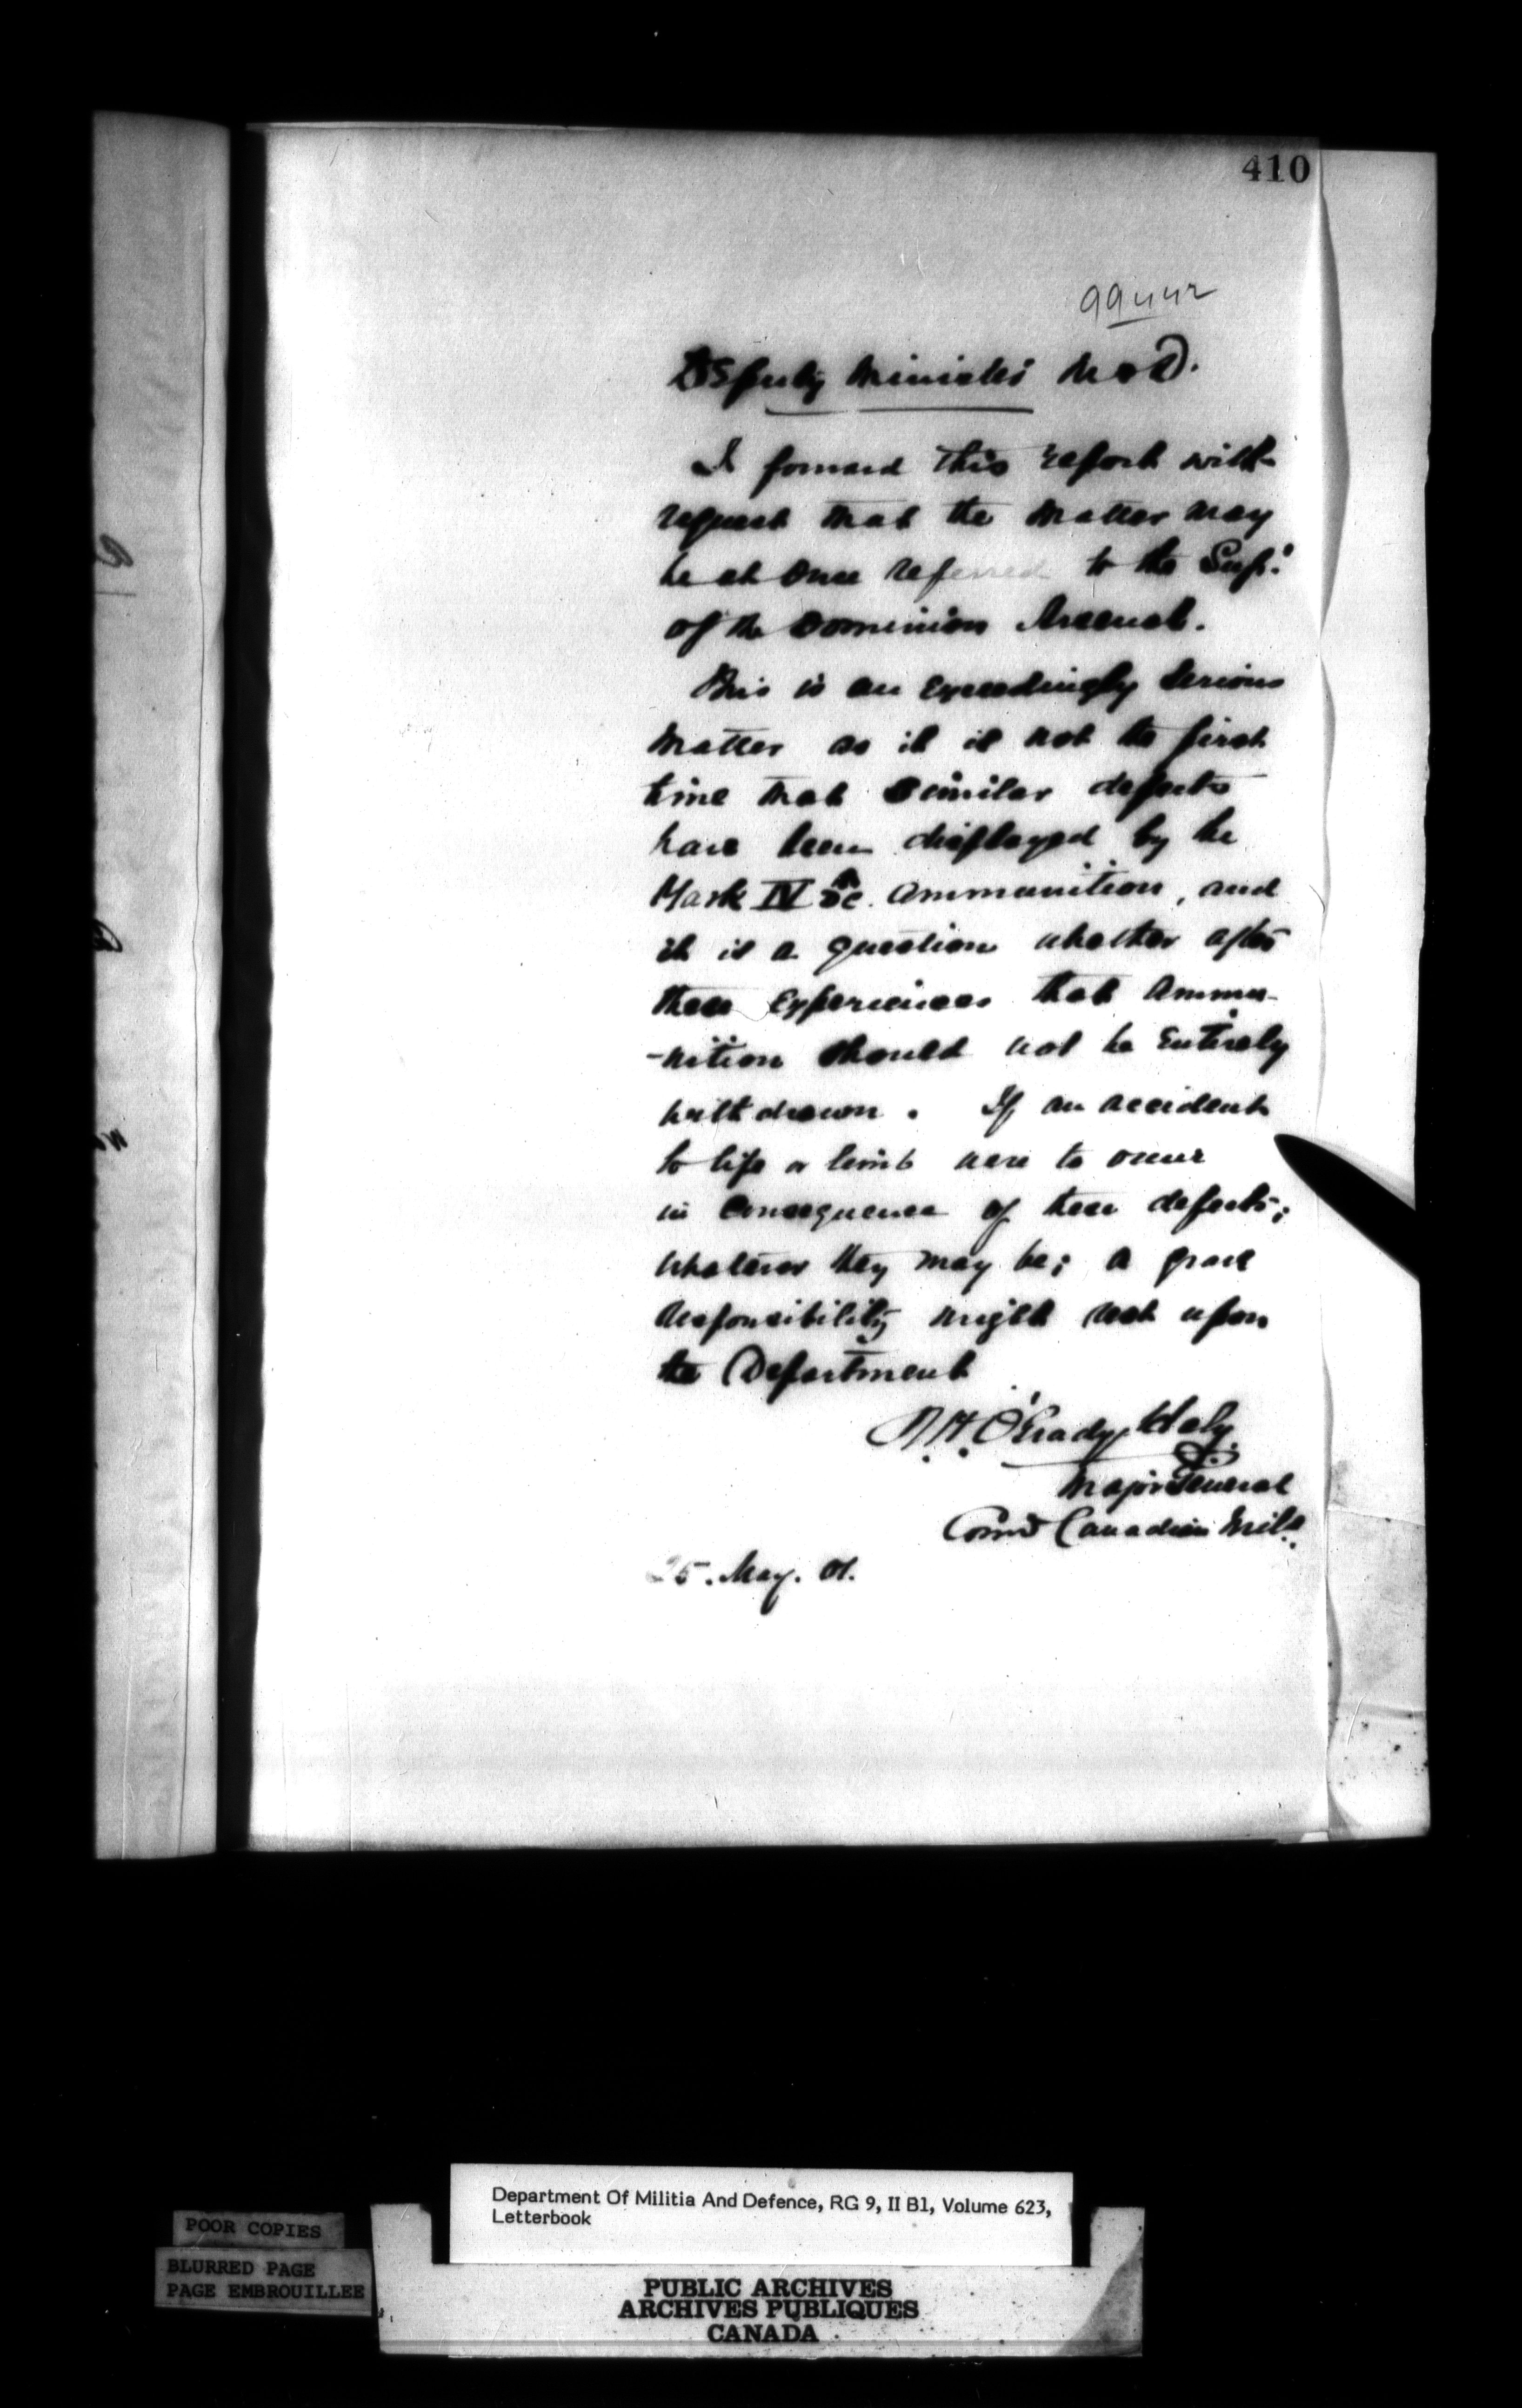 410
99442
Deputy Minister M & D.
I forward this report with
request that the matter may
be at once referred to the Supt.
of the Dominion Arsenal.
This is an exceedingly serious
matter as it is not the first
time that similar defects
have been displayed by the
Mark IV DC ammunition, and
it is a question whether after
these experiences that ammu-
-nition should not be entirely
withdrawn. If an accident
to life or limb were to occur
in consequence of these defects;
whatever they may be; a grave
responsibility might rest upon
the Department
R.H. O'Grady Haly
Major General
Comd Canadian Mila.
25. May. 01.
Department Of Militia And Defence, RG 9, II B1, Volume 623,
Letterbook
POOR COPIES
BLURRED PAGE
PAGE EMBROUILLEE
PUBLIC ARCHIVES
ARCHIVES PUBLIQUES
CANADA